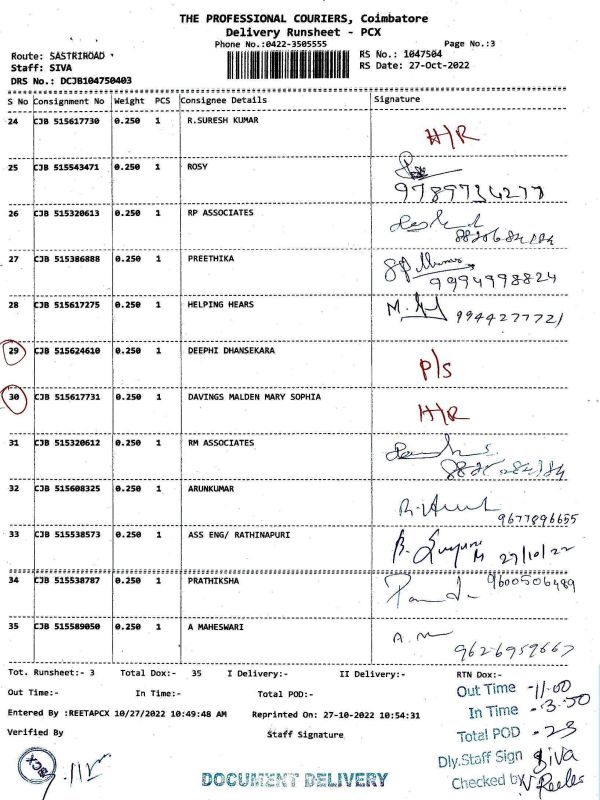 THE PROFESSIONAL COURIERS, Coimbatore
Delivery Runsheet - PCX
Phone No.:0422-3505555 Page No.:3
Route: SASTRIROAD RS No.: 1047504
Staff: SIVA RS Date: 27-Oct-2022
DRS No.: DCJB104750403
S No Consignment No Weight PCS Consignee Details Signature
24 CJB 515617730 0.250 1 R.SURESH KUMAR
H/R
25 CJB 515543471 0.250 1 ROSY
9789734277
26 CJB 515320613 0.250 1 RP ASSOCIATES
27 CJB 515386888 0.250 1 PREETHIKA
9994998824
28 CJB 515617275 0.250 1 HELPING HEARS
9944277721
29 CJB 515624610 0.250 1 DEEPHI DHANSEKARA
P/S
30 CJB 515617731 0.250 1 DAVINGS MALDEN MARY SOPHIA
H/R
31 CJB 515320612 0.250 1 RM ASSOCIATES
32 CJB 515608325 0.250 1 ARUNKUMAR
9677896655
33 CJB 515538573 0.250 1 ASS ENG/ RATHINAPURI
27/10/22
34 CJB 515538787 0.250 1 PRATHIKSHA
9600506489
35 CJB 515589050 0.250 1 A MAHESWARI
9626959667
Tot. Runsheet:- 3 Total Dox:- 35 I Delivery:- II Delivery:- RTN Dox:-
Out Time:- In Time:- Total POD:-
Out Time - 11.00
In Time - 3.50
Entered By :REETAPCX 10/27/2022 10:49:48 AM Reprinted On: 27-10-2022 10:54:31
Verified By Staff Signature
Total POD - 23
Dly.Staff Sign Siva
Checked by
BCX
DOCUMENT DELIVERY